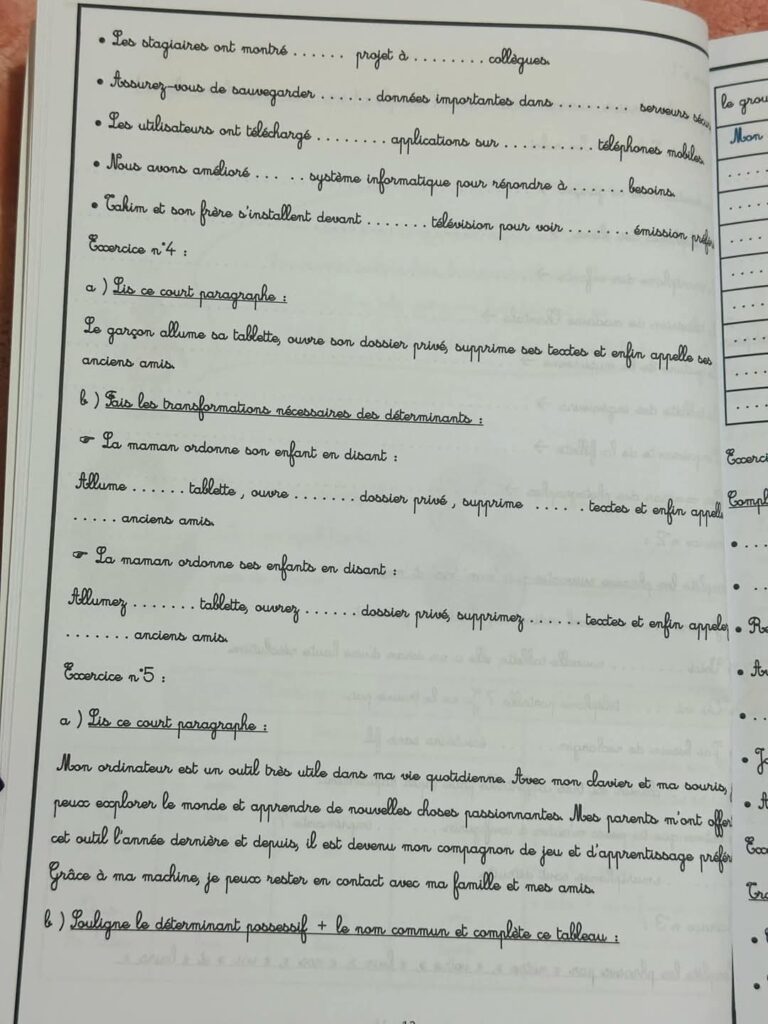 • Les stagiaires ont montré . . . . . . projet à . . . . . . . . collègues.
• Assurez-vous de sauvegarder . . . . . . données importantes dans . . . . . . . . serveurs
• Les utilisateurs ont téléchargé . . . . . . . . applications sur . . . . . . . . . . téléphones mobiles.
• Nous avons amélioré . . . . . système informatique pour répondre à . . . . . . besoins.
• Takim et son frère s'installent devant . . . . . . . télévision pour voir . . . . . . . émission
Exercice n°4 :
a ) Lis ce court paragraphe :
Le garçon allume sa tablette, ouvre son dossier privé, supprime ses textes et enfin appelle ses
anciens amis.
b ) Fais les transformations nécessaires des déterminants :
☞ La maman ordonne son enfant en disant :
Allume . . . . . . tablette , ouvre . . . . . . . dossier privé , supprime . . . . . textes et enfin
. . . . . anciens amis.
☞ La maman ordonne ses enfants en disant :
Allumez . . . . . . . tablette, ouvrez . . . . . . dossier privé, supprimez . . . . . . textes et enfin
. . . . . . . anciens amis.
Exercice n°5 :
a ) Lis ce court paragraphe :
Mon ordinateur est un outil très utile dans ma vie quotidienne. Avec mon clavier et ma souris,
peux explorer le monde et apprendre de nouvelles choses passionnantes. Mes parents m'ont
cet outil l'année dernière et depuis, il est devenu mon compagnon de jeu et d'apprentissage
Grâce à ma machine, je peux rester en contact avec ma famille et mes amis.
b ) Souligne le déterminant possessif + le nom commun et complète ce tableau :
le
Mon